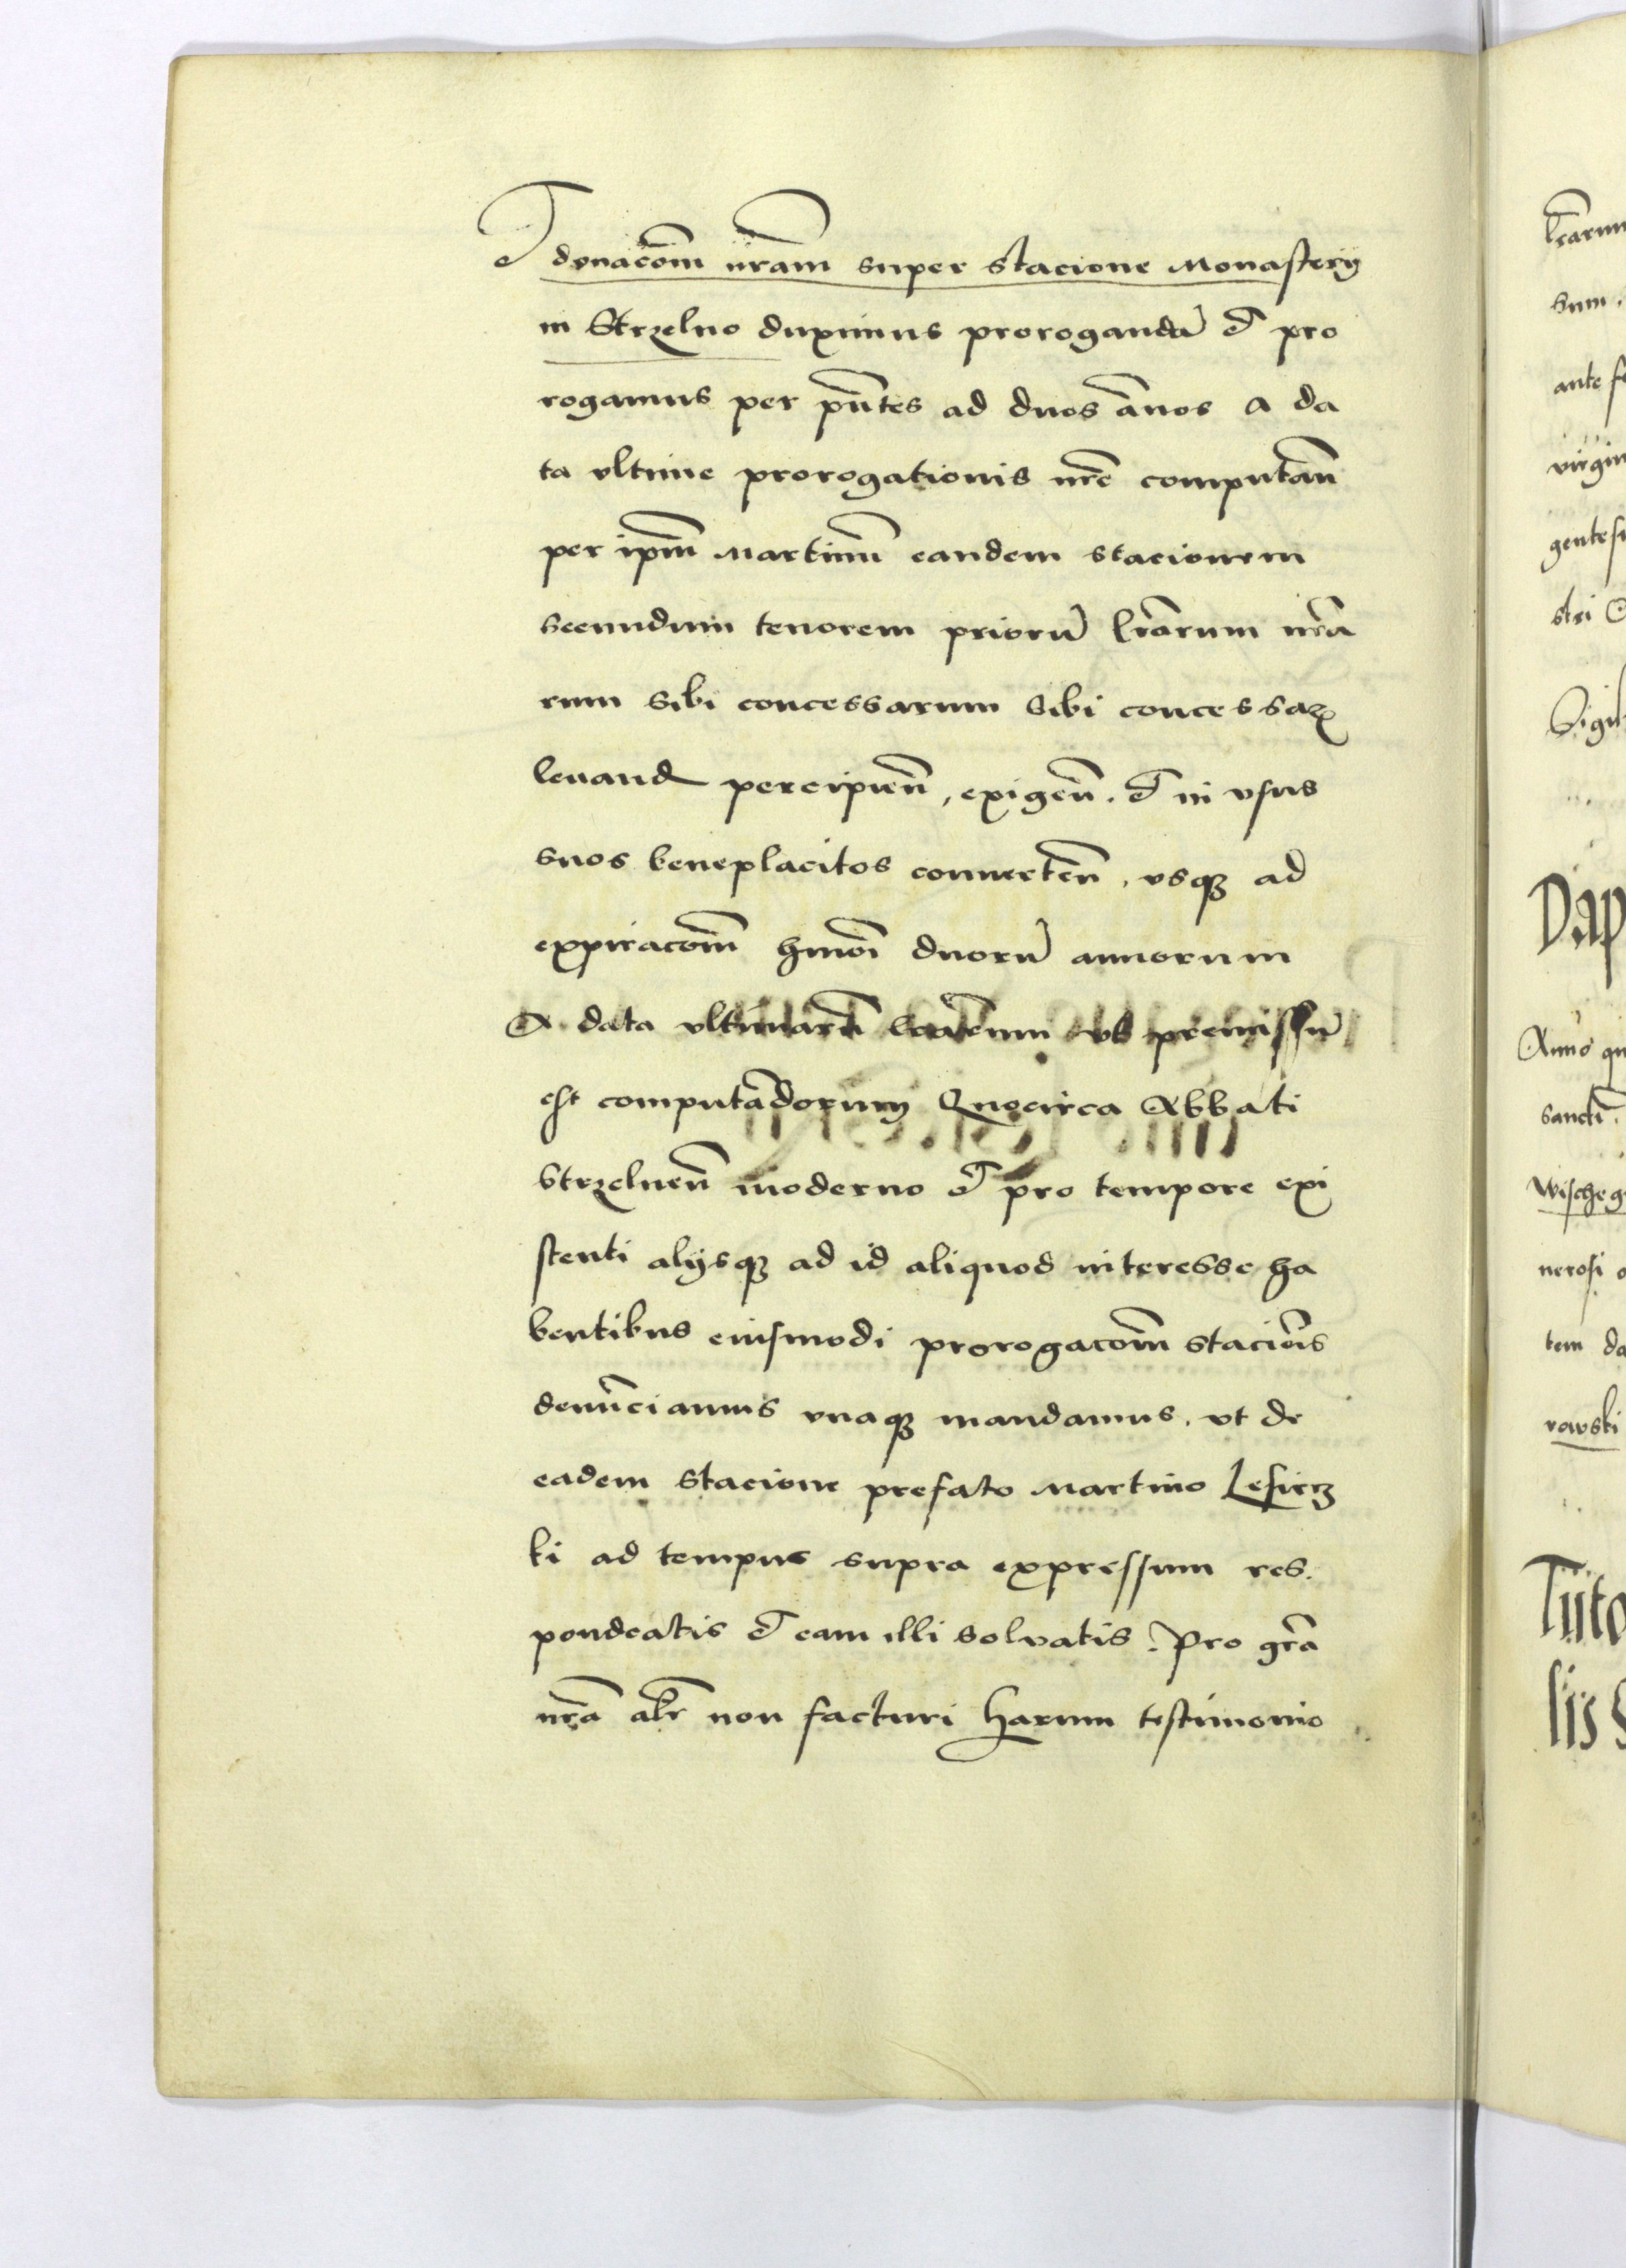 Et donacōm nr̄am super stacione Monasterij
in Strzelno duximus prorogandā et pro
rogamus per pn̄tes ad duos ānos a da
ta vltime prorogationis nr̄e computan̄
per ip̄m Martinū eandem stacionem
secundum tenorem priorū lr̄arum nr̄a
rum sibi concessarum sibi concessaꝝ
leuand percipien̄, exigen̄. et in vsus
suos beneplacitos conuerten̄, vsqꝫ ad
expiracōm hmōi duorū annorum
A data vltimarū vt premissū
est computādorum Quocirca Abbati
Strzelnen̄ moderno et pro tempore exi
stenti alijsqꝫ ad id aliquod interesse ha
bentibus eiusmodi prorogacōm stacōis
denūciamus vnaqꝫ mandamus. vt de
eadem stacione prefato Martino
ki ad tempus supra expressum res.
pondeatis et eam illi soluatis. Pro gr̄a
nr̄a alr̄ non facturi harum testimonio.
lr̄arum
sum.
ante
virgin
gentesi
stri
Sigil
Dap
Anno qu
sancti.
Wischeg
nerosi
tem da
rawski
Tuto
lis